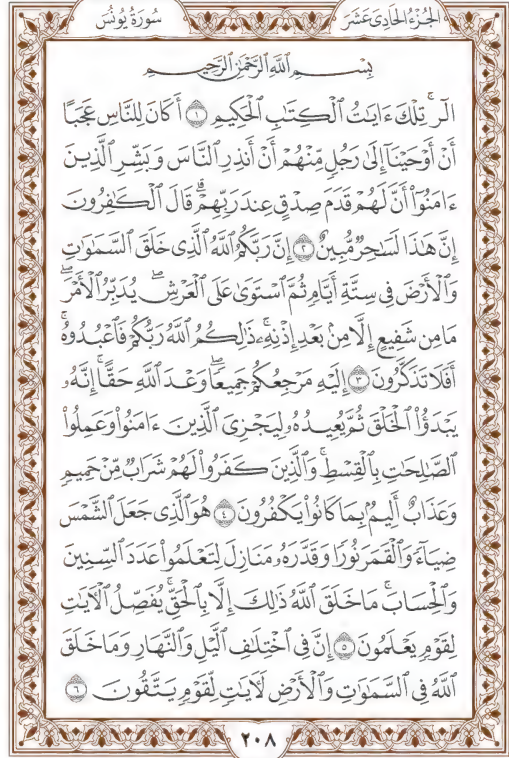 الجُزْءُ الحَادِيَ عَشَرَ سُورَةُ يُونُسَ
بِسْمِ ٱللَّهِ ٱلرَّحْمَٰنِ ٱلرَّحِيمِ
الٓرۚ تِلْكَ ءَايَٰتُ ٱلْكِتَٰبِ ٱلْحَكِيمِ ١ أَكَانَ لِلنَّاسِ عَجَبًا
أَنْ أَوْحَيْنَآ إِلَىٰ رَجُلٍ مِّنْهُمْ أَنْ أَنذِرِ ٱلنَّاسَ وَبَشِّرِ ٱلَّذِينَ
ءَامَنُوٓا۟ أَنَّ لَهُمْ قَدَمَ صِدْقٍ عِندَ رَبِّهِمْۗ قَالَ ٱلْكَٰفِرُونَ
إِنَّ هَٰذَا لَسَٰحِرٌ مُّبِينٌ ٢ إِنَّ رَبَّكُمُ ٱللَّهُ ٱلَّذِى خَلَقَ ٱلسَّمَٰوَٰتِ
وَٱلْأَرْضَ فِى سِتَّةِ أَيَّامٍ ثُمَّ ٱسْتَوَىٰ عَلَى ٱلْعَرْشِۖ يُدَبِّرُ ٱلْأَمْرَۖ
مَا مِن شَفِيعٍ إِلَّا مِنۢ بَعْدِ إِذْنِهِۦۚ ذَٰلِكُمُ ٱللَّهُ رَبُّكُمْ فَٱعْبُدُوهُۚ
أَفَلَا تَذَكَّرُونَ ٣ إِلَيْهِ مَرْجِعُكُمْ جَمِيعًاۖ وَعْدَ ٱللَّهِ حَقًّاۚ إِنَّهُۥ
يَبْدَؤُا۟ ٱلْخَلْقَ ثُمَّ يُعِيدُهُۥ لِيَجْزِىَ ٱلَّذِينَ ءَامَنُوا۟ وَعَمِلُوا۟
ٱلصَّٰلِحَٰتِ بِٱلْقِسْطِۚ وَٱلَّذِينَ كَفَرُوا۟ لَهُمْ شَرَابٌ مِّنْ حَمِيمٍ
وَعَذَابٌ أَلِيمٌۢ بِمَا كَانُوا۟ يَكْفُرُونَ ٤ هُوَ ٱلَّذِى جَعَلَ ٱلشَّمْسَ
ضِيَآءً وَٱلْقَمَرَ نُورًا وَقَدَّرَهُۥ مَنَازِلَ لِتَعْلَمُوا۟ عَدَدَ ٱلسِّنِينَ
وَٱلْحِسَابَۚ مَا خَلَقَ ٱللَّهُ ذَٰلِكَ إِلَّا بِٱلْحَقِّۚ يُفَصِّلُ ٱلْءَايَٰتِ
لِقَوْمٍ يَعْلَمُونَ ٥ إِنَّ فِى ٱخْتِلَٰفِ ٱلَّيْلِ وَٱلنَّهَارِ وَمَا خَلَقَ
ٱللَّهُ فِى ٱلسَّمَٰوَٰتِ وَٱلْأَرْضِ لَءَايَٰتٍ لِّقَوْمٍ يَتَّقُونَ ٦
٢٠٨